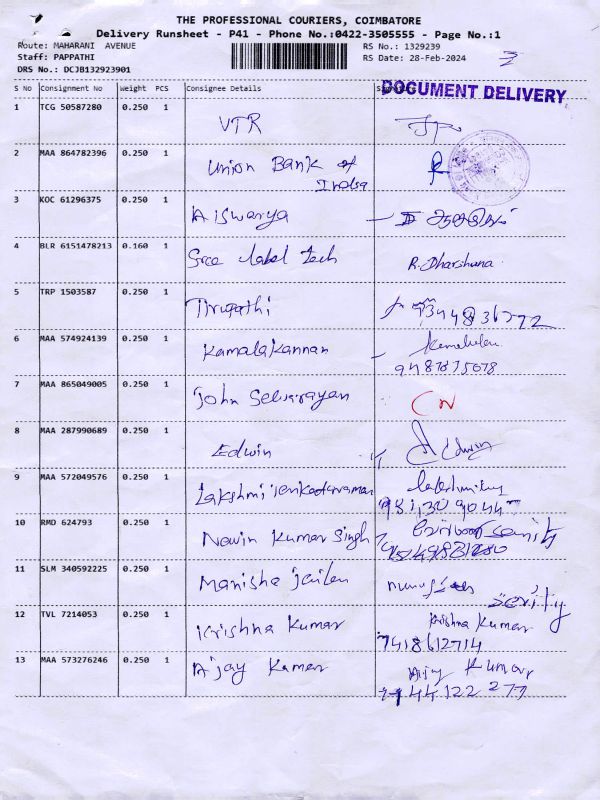 THE PROFESSIONAL COURIERS, COIMBATORE
Delivery Runsheet - P41 - Phone No.:0422-3505555 - Page No.:1
Route: MAHARANI AVENUE RS No.: 1329239
Staff: PAPPATHI RS Date: 28-Feb-2024
DRS No.: DCJB132923901
S No Consignment No Weight PCS Consignee Details
DOCUMENT DELIVERY
1 TCG 50587280 0.250 1 VTR
2 MAA 864782396 0.250 1 Union Bank of
India
3 KOC 61296375 0.250 1 Aiswarya
4 BLR 6151478213 0.160 1 Sree label Tech R. Dharshana
5 TRP 1503587 0.250 1 Tirupathi
6 MAA 574924139 0.250 1 Kamalakannan
7 MAA 865049005 0.250 1 John Selvarayan
8 MAA 287990689 0.250 1 Edwin Edwin
9 MAA 572049576 0.250 1 Lakshmi
10 RMD 624793 0.250 1 Navin Kumar Singh
11 SLM 340592225 0.250 1 Manisha
12 TVL 7214053 0.250 1 Krishna Kumar Krishna Kumar
7418612714
13 MAA 573276246 0.250 1 Ajay Kumar Ajay Kumar